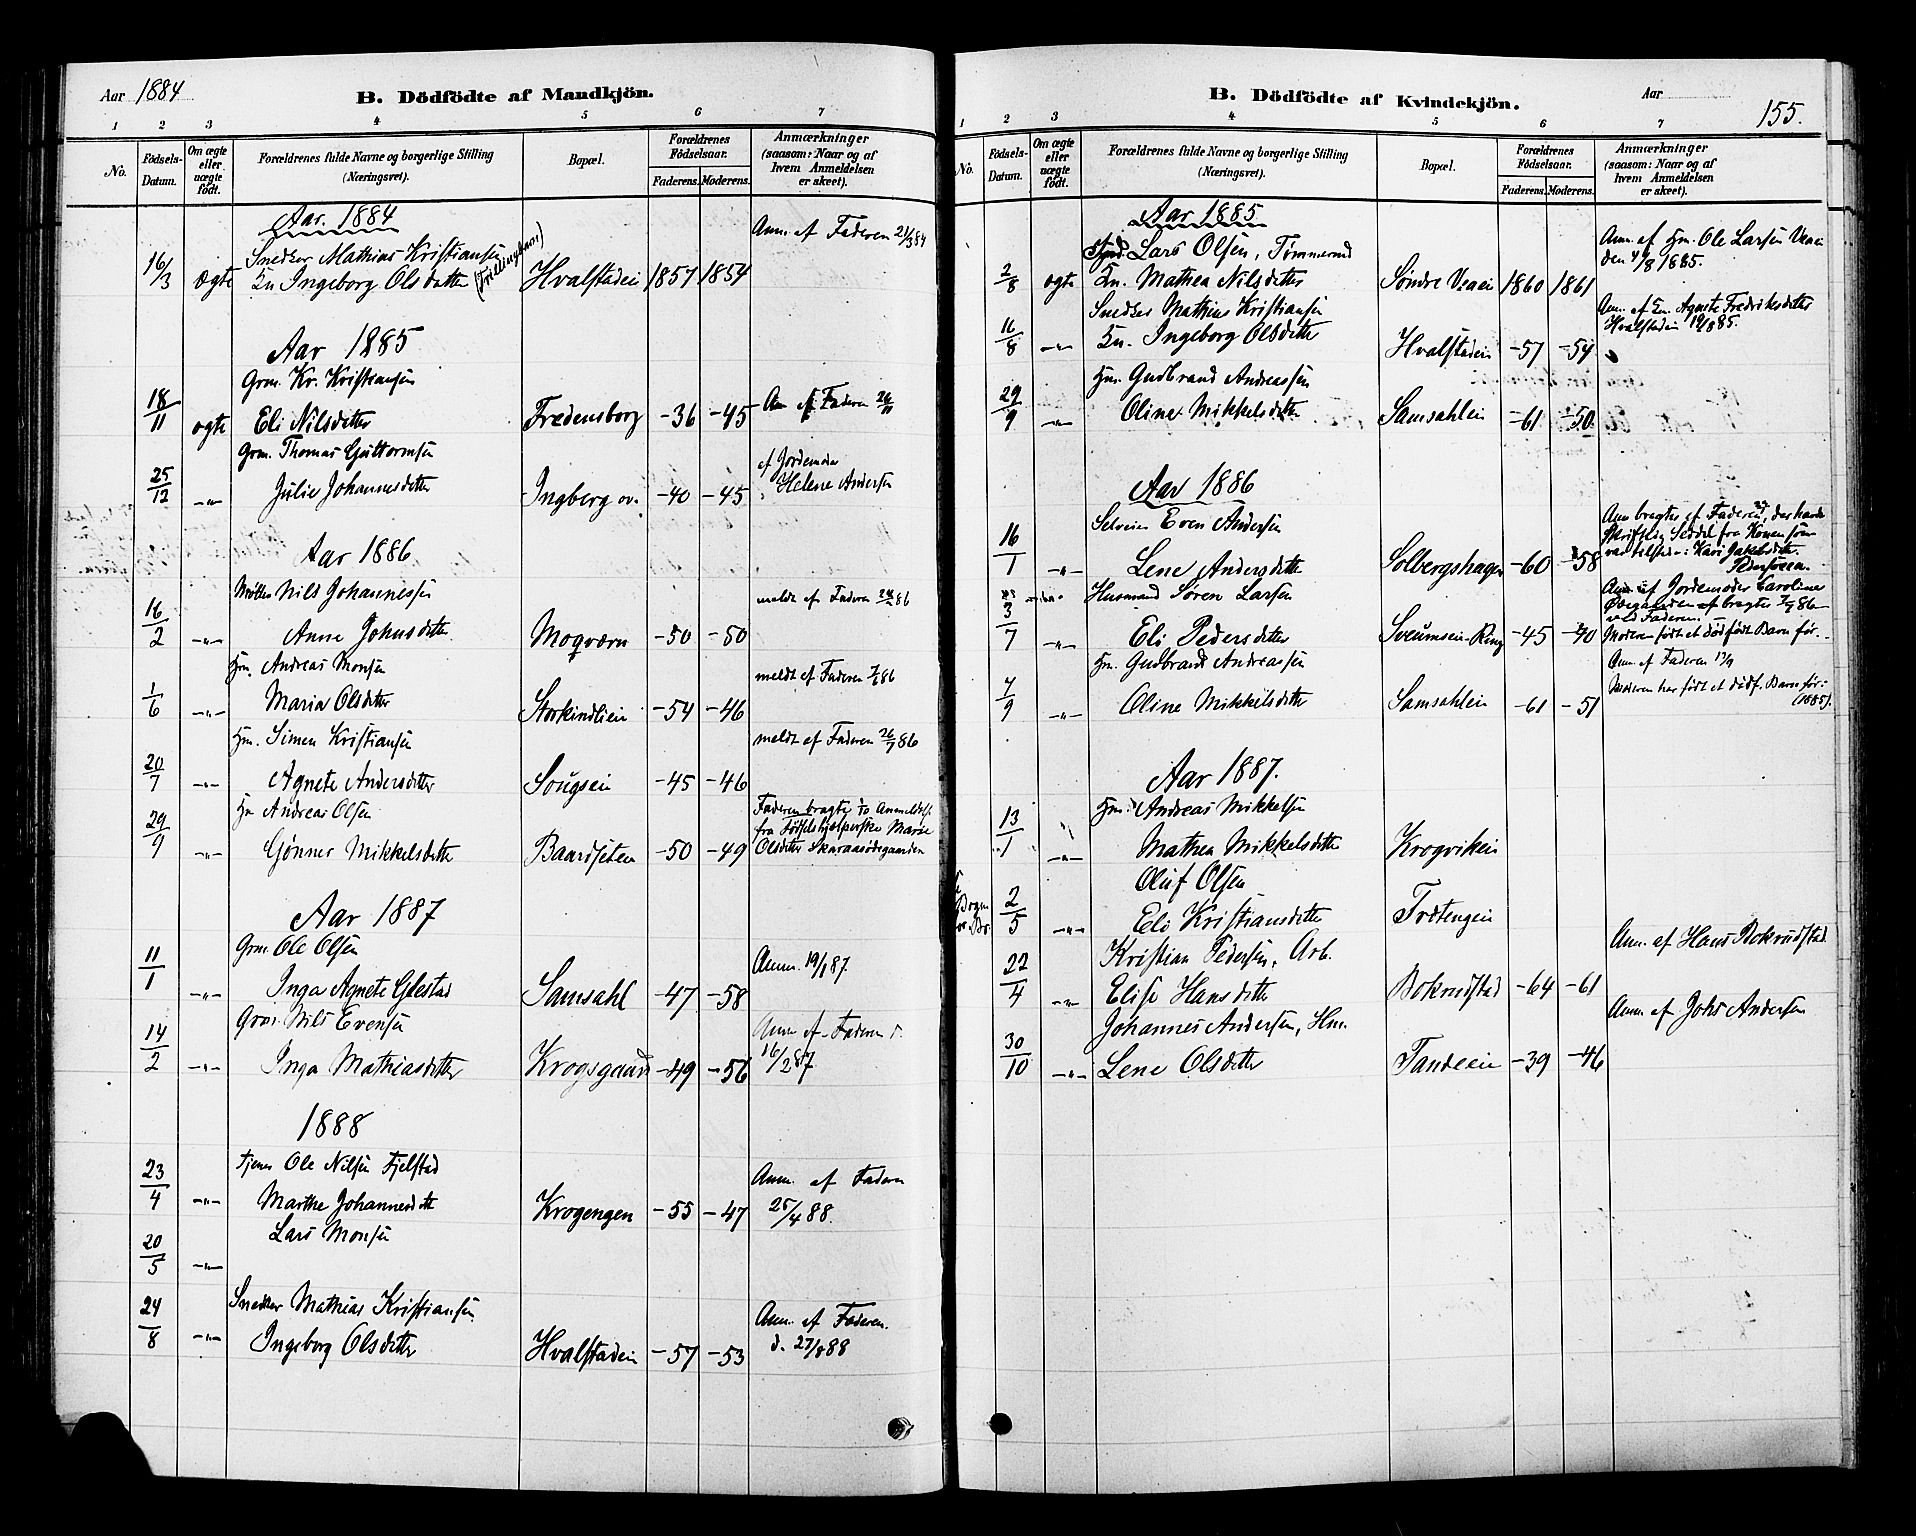 Aar 1884
B. Dödfödte af Mandkjön.
1 2 3 4 5 6 7
No.
Födsels-Datum.
Om ægte eller uægte födt.
Forældrenes fulde Navne og borgerlige Stilling (Næringsvei).
Bopæl.
Forældrenes Födselsaar.
Faderens. Moderens.
Anmærkninger (saasom: Naar og af hvem Anmeldelsen er skeet).
Aar. 1884
Anm. af Faderen 21/3 84
Snedker Mathias Kristiansen
16/3 ægte Kn Ingeborg Olsdatter (Trillingbarn) Hvalstadei 1857 1854
Aar 1885
Grm. Kr. Kristiansen
18/11 ægte Eli Nilsdatter Fredensborg -36 -45 An af Faderen 26/11
Grm. Thomas Guttormsen
af Jordemoder
25/12 -"- Julie Johannesdatter Ingberg ov. -40 -45 Helene Andersen
Aar 1886
Møller Nils Johannessen meldt af Faderen 86
16/2 -"- Anne Johnsdatter Moqværn -50 -50
Hm. Andreas Monsen meldt af Faderen 86
1/6 -"- Maria Olsdatter Storkindlien -54 -46
Hm. Simen Kristiansen meldt af Faderen 26/7 86
20/7 -"- Agnete Andersdatter Sougsei -45 -46
Hm Andreas Olsen Faderen bragte Anmeldels.
fra Fødselshjelperske Marie
29/9 -"- Gønner Mikkelsdatter Baardseten -50 -49 Olsdatter Skaraasødegaarden
Aar 1887
Grm. Ole Olsen
11/1 -"- Inga Agnete Glestad Samsahl -47 -58 Anm. 19/1 87.
Grm. Nils Evensen Anm af Faderen d.
14/2 -"- Inga Mathiasdatter Krogsgaard -49 -56 16/2 87
1888
Tjener Ole Nilsen Fjelstad Anm. af Faderen
23/4 -"- Marthe Johannesdatt Krogengen -55 -47 25/4 88.
Lars Monsen
20/5 -"-
Snedker Mathias Kristiansen. Anm. af Faderen.
24/8 -"- Ingeborg Olsdatter Hvalstadein -57 -53 d. 27/8 88
B. Dödfödte af Kvindekjön.
Aar
155.
1 2 3 4 5 6 7
No.
Födsels-Datum.
Om ægte eller uægte födt.
Forældrenes fulde Navne og borgerlige Stilling (Næringsvei).
Bopæl.
Forældrenes Födselsaar.
Faderens. Moderens.
Anmærkninger (saasom: Naar og af hvem Anmeldelsen er skeet).
Aar 1885
Lars Olsen, Tømmermd Anm. af Hm. Ole Larsen Veaei
2/8 ægte Kn. Mathea Nilsdatter Søndre Veaei 1860 1861 den 4/8 1885.
Snedker Mathias Kristiansen Anm. af Kn. Agnete Fredriksdatter
11/8 -"- Kn. Ingeborg Olsdatter Hvalstadein -57 -54 Hvalstadein 19/8 85.
Hm. Gudbrand Andreassen
29/9 -"- Oline Mikkelsdatter Samsahlein -61 -50
Aar 1886
Selveier Even Andersen Anm bragtes af Faderen, der havde
skriftlig Seddel fra Konen som
16/1 -"- Lene Andersdatter Solbergshagen -60 -58 var tilstede: Kari Jakobsdatter.
Husmand Søren Larsen Anm af Jordemoder Caroline
bragtes 7/7 86
ved Faderen.
3/7 -"- Eli Pedersdatter Sveumsein-Ring -45 -40 Moderen født et dødfødt Barn før.
Hm. Gudbrand Andreassen Anm. af Faderen 13/9
7/9 -"- Oline Mikkelsdatter Samsahlein -61 -51 Moderen har født et dødf. Barn før:
(1885).
Aar 1887.
Hm. Andreas Mikkelsen
13/1 -"- Mathea Mikkelsdatter Krogvikein
Oluf Olsen
2/5 -"- Eli Kristiansdatter Trøtengein
Kristian Pedersen, Arb. Anm. af Hans Bokrudstad
22/4 -"- Elise Hansdatter Bokrudstad -64 -61
Johannes Andersen, Hm. Anm. af Johs Andersen
30/10 -"- Lene Olsdatter Tandeein -39 -46